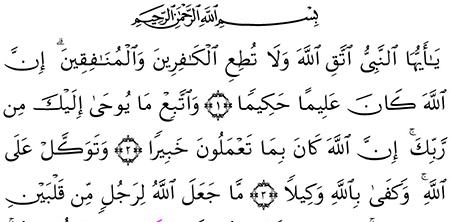 بِسْمِ ٱللَّهِ ٱلرَّحْمَٰنِ ٱلرَّحِيمِ
يَٰٓأَيُّهَا ٱلنَّبِىُّ ٱتَّقِ ٱللَّهَ وَلَا تُطِعِ ٱلْكَٰفِرِينَ وَٱلْمُنَٰفِقِينَ ۗ إِنَّ
ٱللَّهَ كَانَ عَلِيمًا حَكِيمًا ﴿١﴾ وَٱتَّبِعْ مَا يُوحَىٰٓ إِلَيْكَ مِن
رَّبِّكَ ۚ إِنَّ ٱللَّهَ كَانَ بِمَا تَعْمَلُونَ خَبِيرًا ﴿٢﴾ وَتَوَكَّلْ عَلَى
ٱللَّهِ ۚ وَكَفَىٰ بِٱللَّهِ وَكِيلًا ﴿٣﴾ مَّا جَعَلَ ٱللَّهُ لِرَجُلٍ مِّن قَلْبَيْنِ